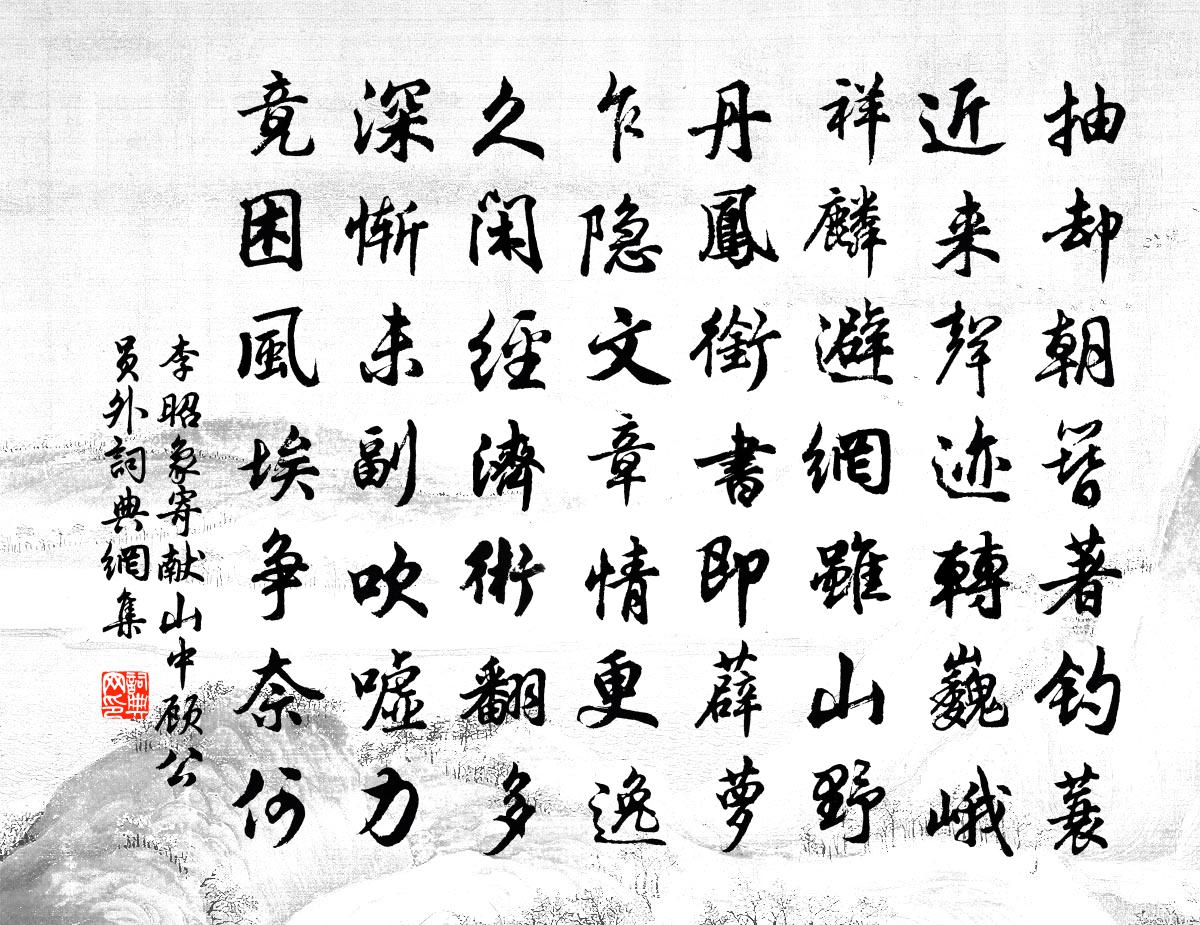 抽却朝簪著钓蓑
近来聲迹轉巍峨
祥麟避網雖山野
丹鳳銜書即薜萝
乍隐文章情更逸
久閑經濟術翻多
深慚未副吹嘘力
竟困風埃争奈何
李昭象寄献山中顾公
员外詞典網集
詞典
网印